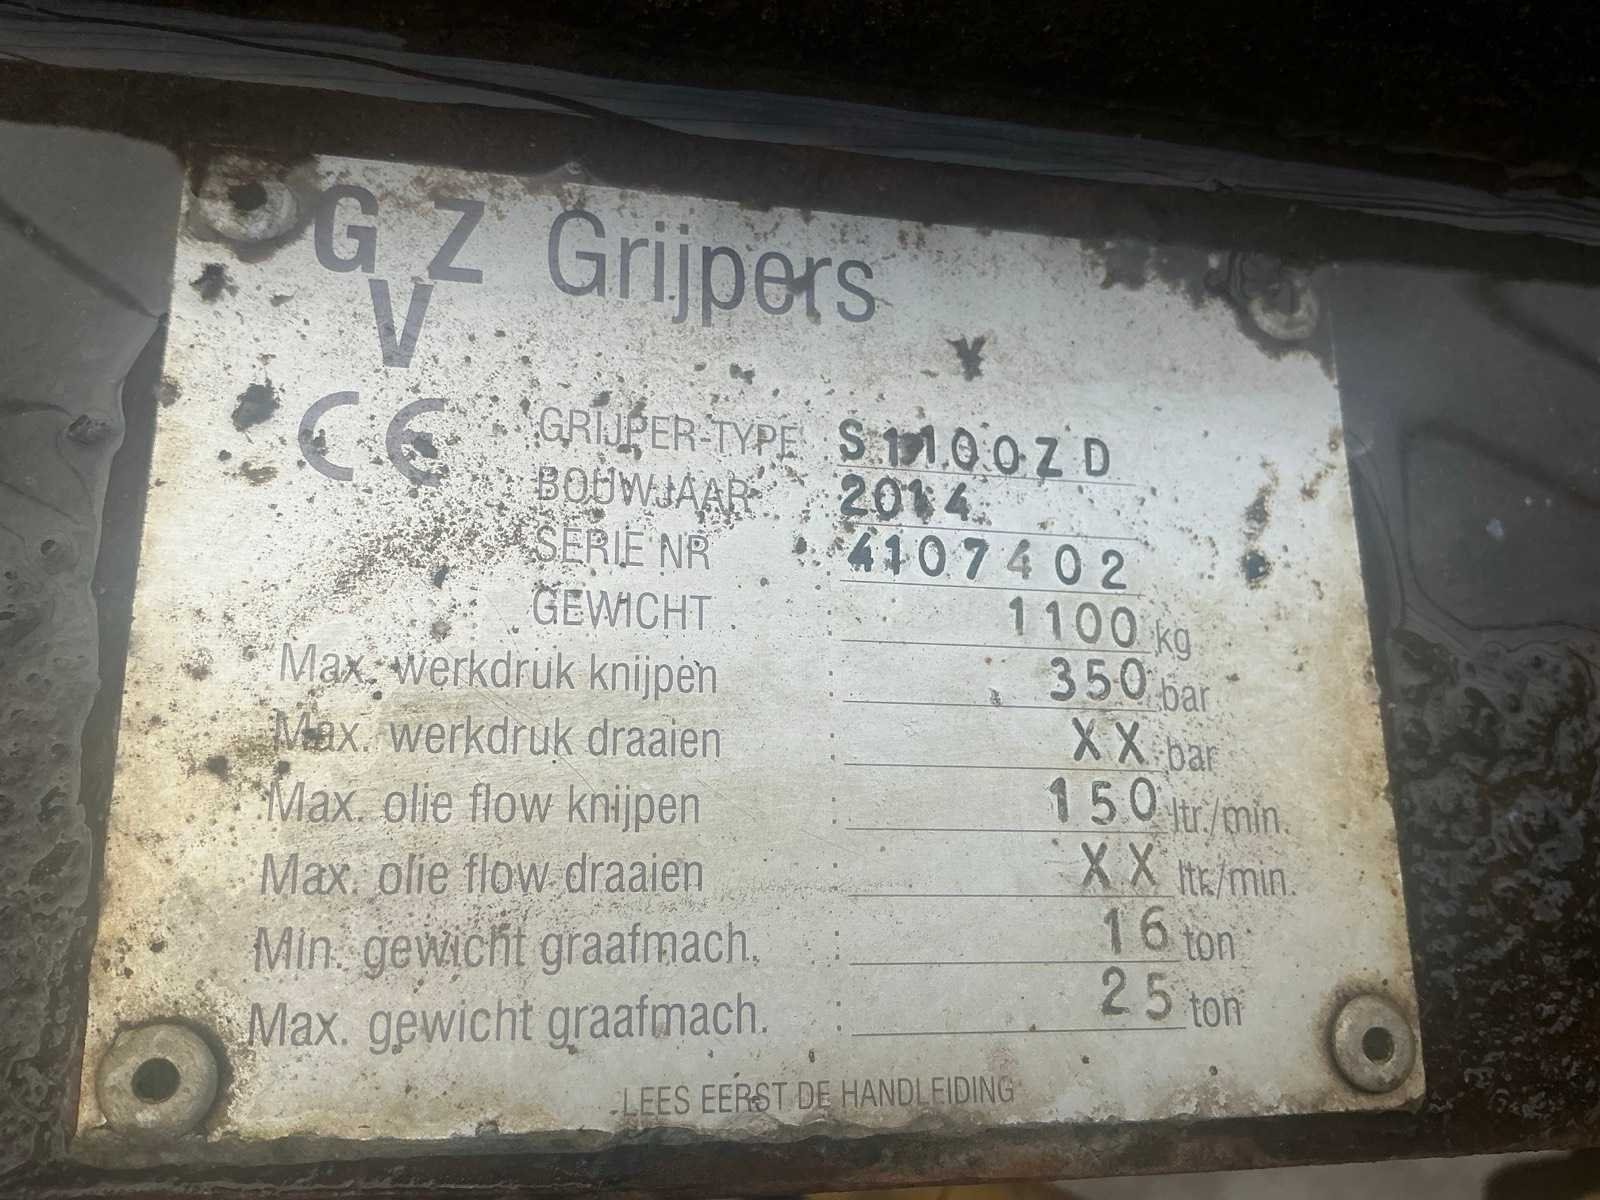 GVZ Grijpers
CE
GRIJPER-TYPE S1100ZD
BOUWJAAR 2014
SERIE NR 4107402
GEWICHT : 1100 kg
Max. werkdruk knijpen : 350 bar
Max. werkdruk draaien : XX bar
Max. olie flow knijpen : 150 ltr./min.
Max. olie flow draaien : XX ltr./min.
Min. gewicht graafmach. : 16 ton
Max. gewicht graafmach. : 25 ton
LEES EERST DE HANDLEIDING